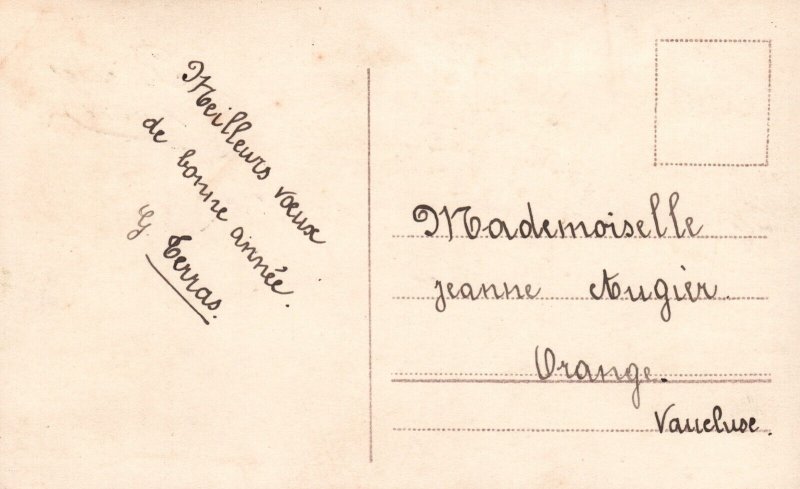 Meilleurs vœux
de bonne année.
G Terras.
Mademoiselle
Jeanne Augier.
Orange.
Vaucluse.